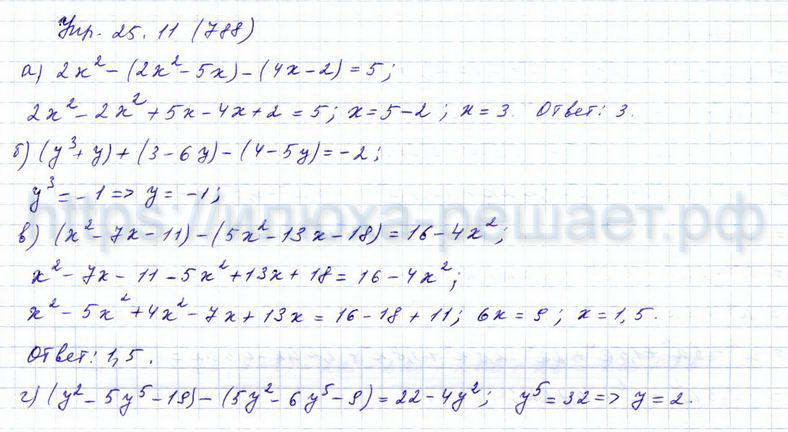 Упр. 25.11 (788)
а) 2x² - (2x² - 5x) - (4x - 2) = 5;
2x² - 2x² + 5x - 4x + 2 = 5; x = 5 - 2; x = 3. Ответ: 3.
б) (y³ + y) + (3 - 6y) - (4 - 5y) = -2;
y³ = -1 => y = -1;
https://илюха-решает.рф
в) (x² - 7x - 11) - (5x² - 13x - 18) = 16 - 4x²;
x² - 7x - 11 - 5x² + 13x + 18 = 16 - 4x²;
x² - 5x² + 4x² - 7x + 13x = 16 - 18 + 11; 6x = 9; x = 1,5.
Ответ: 1,5.
г) (y² - 5y⁵ - 19) - (5y² - 6y⁵ - 9) = 22 - 4y²; y⁵ = 32 => y = 2.